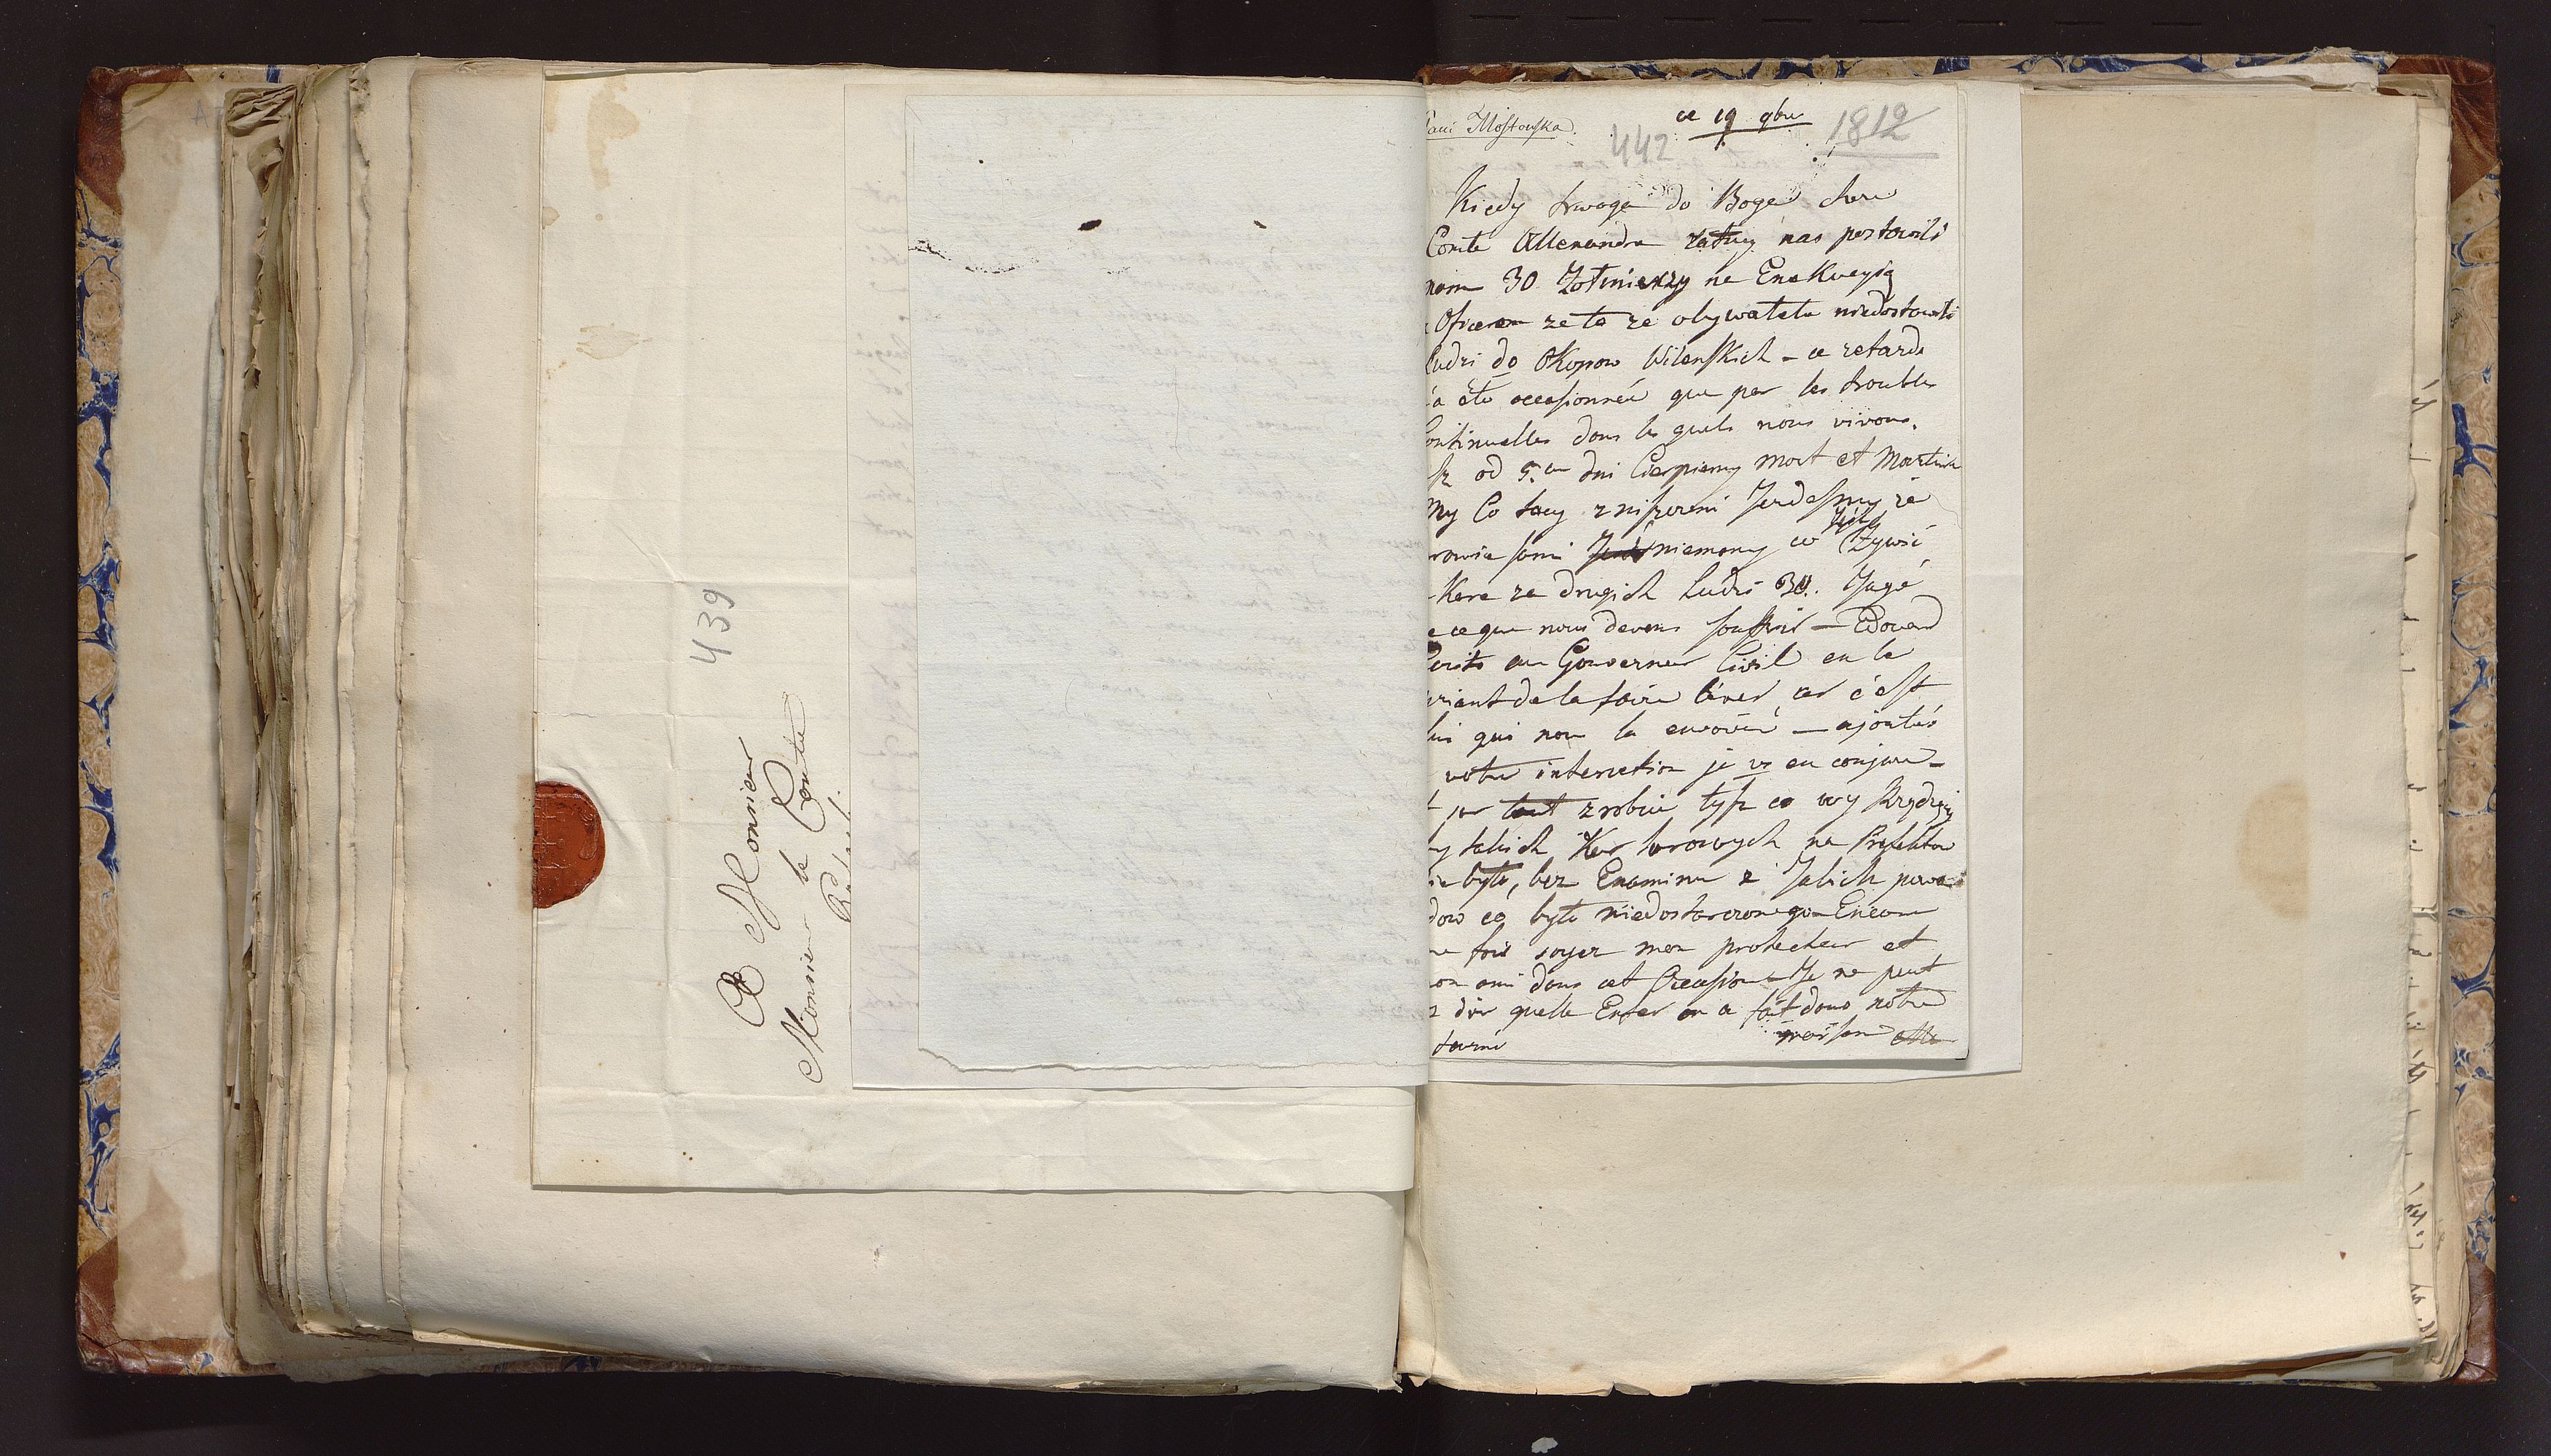 439
A Monsieur
Monsieur le Comte
Pani Mostowska.
ce 19 9bre
442
1812
Kiedy trwoga do Boga chere
Comte Allexandre ratuy nas postawili
nam 30 Zołnierzy na Exekucyią
Oficerem za to ze obywatele niedostawili
ludzi do Okopow Wilenskich – ce retard
a été occasionnée que par les troubles
Continuelles dans les quels nous vivons.
od 5.cu dni Cierpiemy mort et Martire
My Co tacy zniszczeni Jesdesmy ze
sami niemamy co Jesdz Zywić
Kara za drugich ludzi 30. Jugé
ce que nous devons souffrir – Edouard
ecrits au Gouverneur Civil en le
priant de la faire léver, car c'est
lui qui nou la envoïée – ajoutés
votre intersetion je vs en conjure –
tout zrobcie tysz co wy Rządzący
takich Kar na Prefektow
było, bez Examinu z Jakich powo
dow co było niedostarczonego – Encore
une fois soyez mon protecteur et
mon ami dans cet Occasion – Je ne peut
dir quelle Enfer on a fait dans notre
maison
tourné